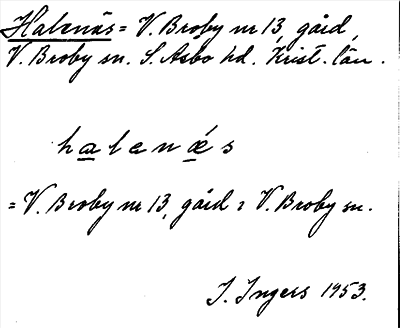 Halenäs = V. Broby nr 13, gård,
V. Broby sn. S. Åsbo hd. Krist. län.
halenǽs
= V. Broby nr 13, gård i V. Broby sn.
I. Ingers 1953.